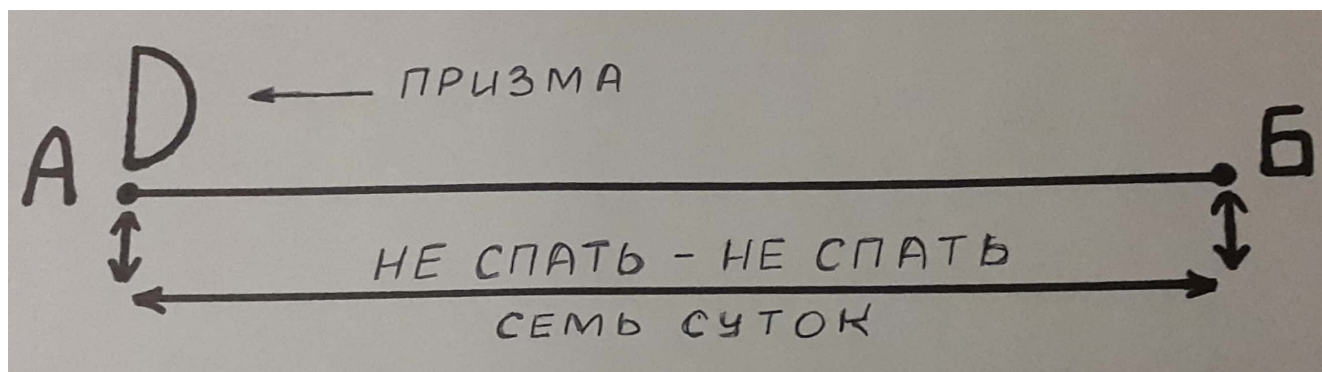 D ← ПРИЗМА
А Б
НЕ СПАТЬ - НЕ СПАТЬ
СЕМЬ СУТОК